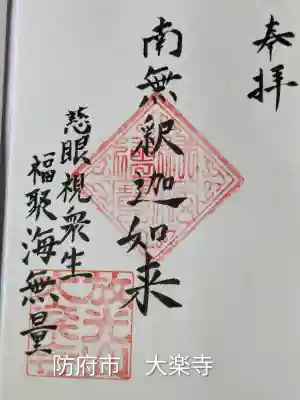 奉拝
南無釈迦如来
慈眼視衆生
福聚海無量
防府市　大楽寺